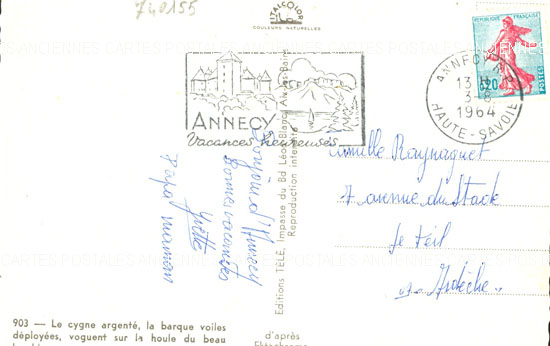 740155
ITALCOLOR
COULEURS NATURELLES
REPUBLIQUE FRANÇAISE
0,20
POSTES
ANNECY R.P.
13 H
3-8
1964
HAUTE-SAVOIE
ANNECY
Vacances heureuses
Editions TELE, Impasse du Bd Léon-Blanc, Aix-les-Bains
Reproduction interdite
Bonjour d'Annecy
Bonnes vacances
Papa maman
Famille Raynaguet
7 avenue du Stade
Le Teil
Ardèche
903 — Le cygne argenté, la barque voiles
déployées, voguent sur la houle du beau
d'après
Ektachrome
CARTES POSTALES ANCIENNES CARTES POSTALES